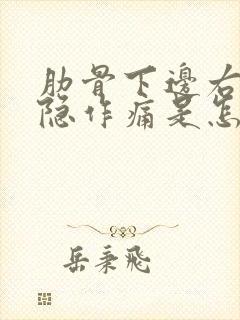 肋骨下邊右
隐作痛是怎
岳秉飛